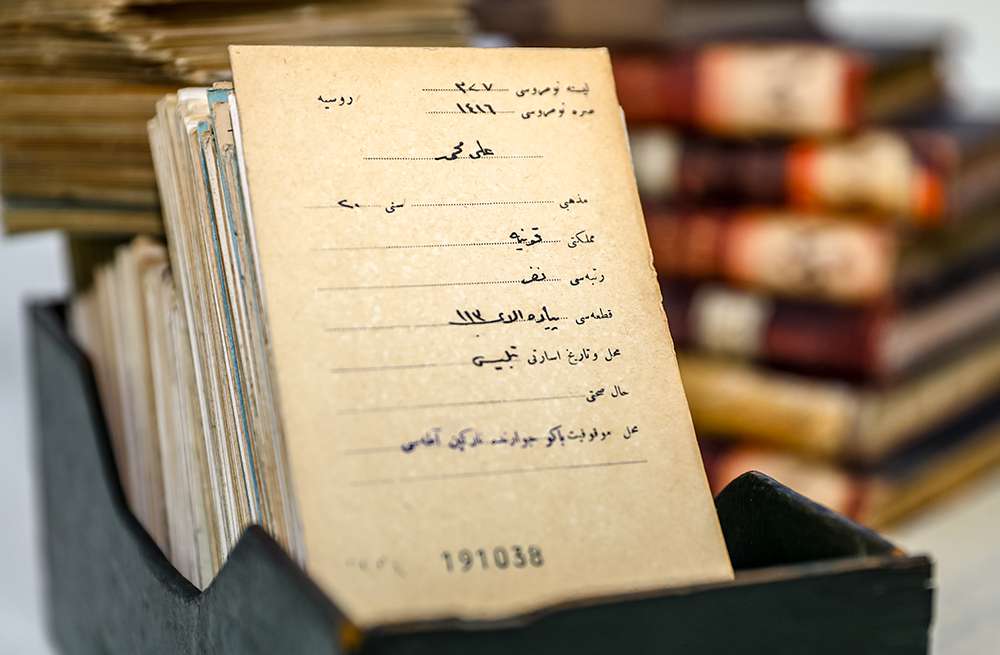 لیسته نومروسی ٣٠٧
روسیه
صره نومروسی ١٤١٦
علی محمد
مذهبی سنی ٢٠
مملکتی قونیه
رتبه‌سی نفر
قطعه‌سی پیاده الای ١١٣
محل و تاریخ اسارتی تبلیسی
حال صحتی
محل موقوفیت باکو جوارنده نارکین آطه‌سی
191038